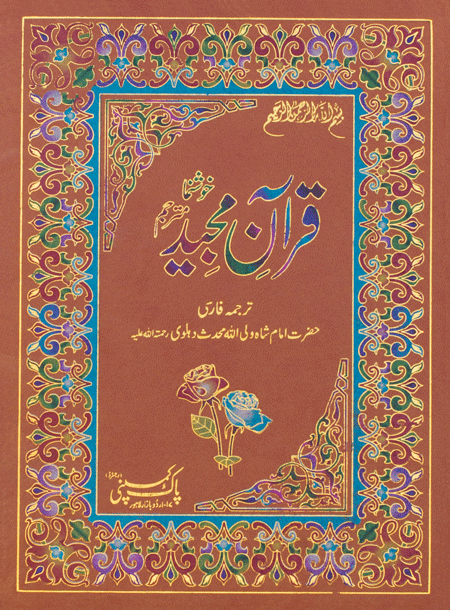 بسم الله الرحمن الرحيم
خوشنما
قرآن مجید مترجم
ترجمہ فارسی
حضرت امام شاہ ولی اللہ محدث دہلوی رحمۃ اللہ علیہ
پاک کمپنی (رجسٹرڈ)
۱۷-اردو بازار لاہور